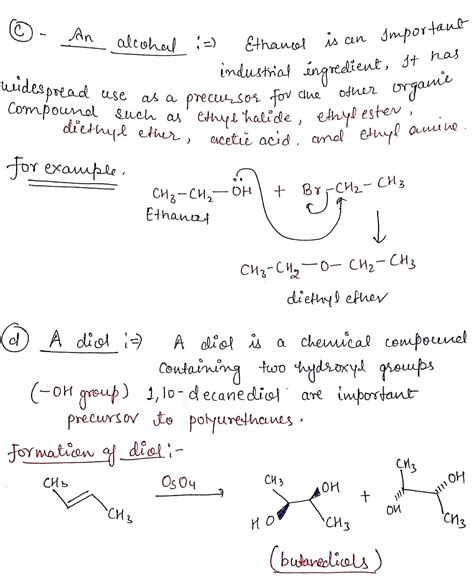 (C) - An alcohol :=> Ethanol is an Important
industrial ingredient, It has
widespread use as a precursor for the other organic
Compound such as ethyl halide, ethyl ester,
diethyl ether, acetic acid. and ethyl amine.
for example.
CH3-CH2-ÖH + Br-CH2-CH3
Ethanol
CH3-CH2-O-CH2-CH3
diethyl ether
(d) A diol :=> A diol is a chemical compound
Containing two hydroxyl groups
(-OH group) 1,10-decanediol are important
precursor to polyurethanes.
Formation of diol :-
CH3 CH3 OsO4 CH3 OH HO CH3 + CH3 OH OH CH3
(butanediols)